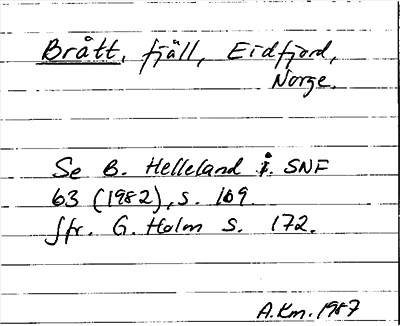 Brått, fjäll, Eidfjord,
Norge.
Se B. Helleland i SNF
63 (1982), s. 169.
Jfr. G. Holm s. 172.
A.Km. 1987